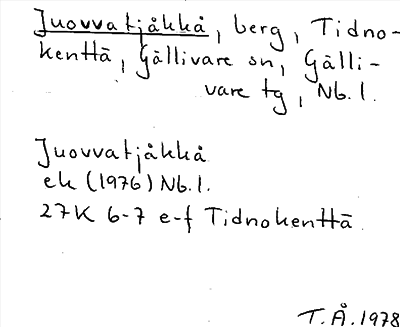 Juovvatjåkkå, berg, Tidno-
kenttä, Gällivare sn, Gälli-
vare tg, Nb.l.
Juovvatjåkkå
ek (1976) Nb.l.
27K 6-7 e-f Tidnokenttä
T.Å.1978